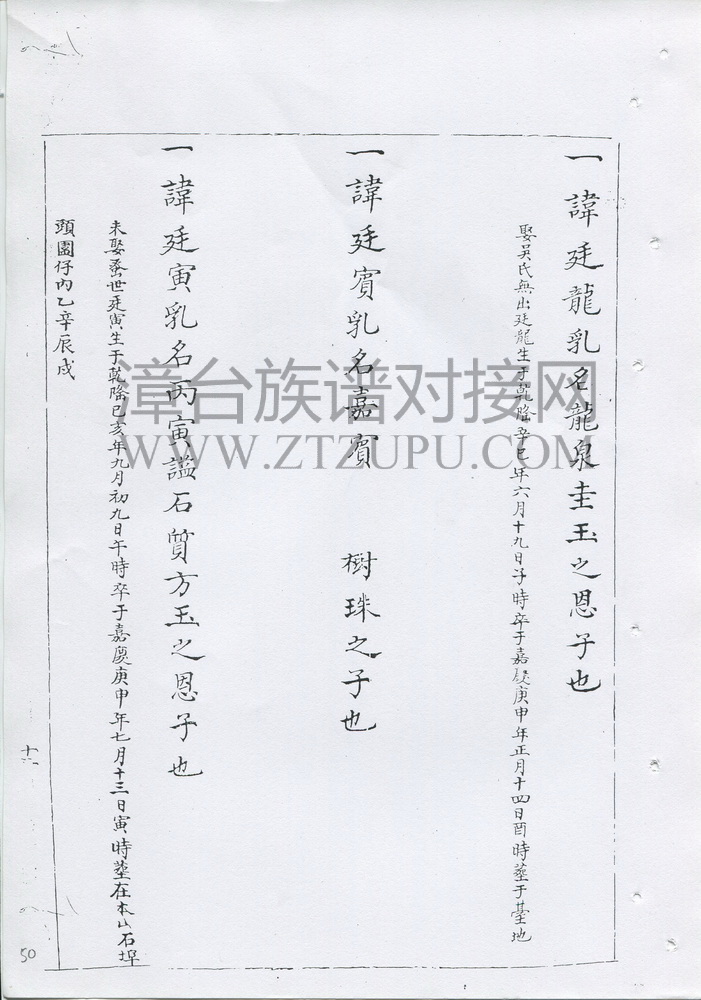 一諱廷龍乳名龍泉圭玉之恩子也
娶吳氏無出廷龍生于乾隆辛巳年六月十九日子時卒于嘉慶庚申年正月十四日酉時塟于墓地
一諱廷賓乳名嘉賓 樹珠之子也
一諱廷寅乳名丙寅謚石質方玉之恩子也
未娶蚤世廷寅生于乾隆己亥年九月初九日午時卒于嘉慶庚申年七月十三日寅時塟在本山石埕
頭園仔內乙辛辰戌
漳台族谱对接网
WWW.ZTZUPU.COM
50